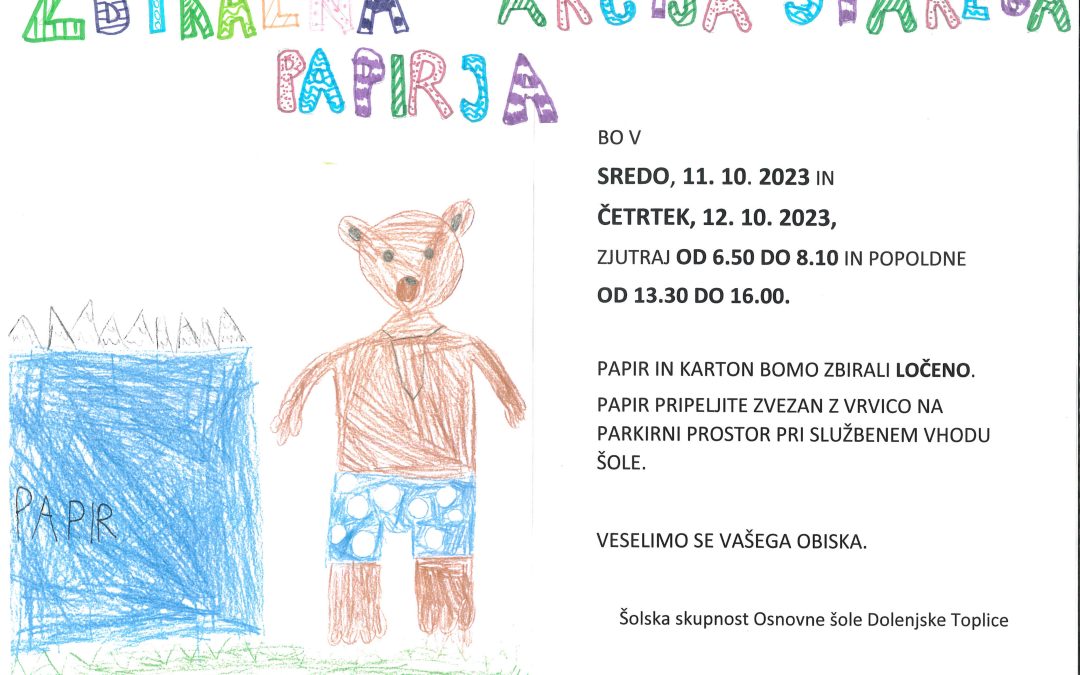 ZBIRALNA AKCIJA STAREGA
PAPIRJA
BO V
SREDO, 11. 10. 2023 IN
ČETRTEK, 12. 10. 2023,
ZJUTRAJ OD 6.50 DO 8.10 IN POPOLDNE
OD 13.30 DO 16.00.
PAPIR IN KARTON BOMO ZBIRALI LOČENO.
PAPIR PRIPELJITE ZVEZAN Z VRVICO NA
PARKIRNI PROSTOR PRI SLUŽBENEM VHODU
ŠOLE.
PAPIR
VESELIMO SE VAŠEGA OBISKA.
Šolska skupnost Osnovne šole Dolenjske Toplice